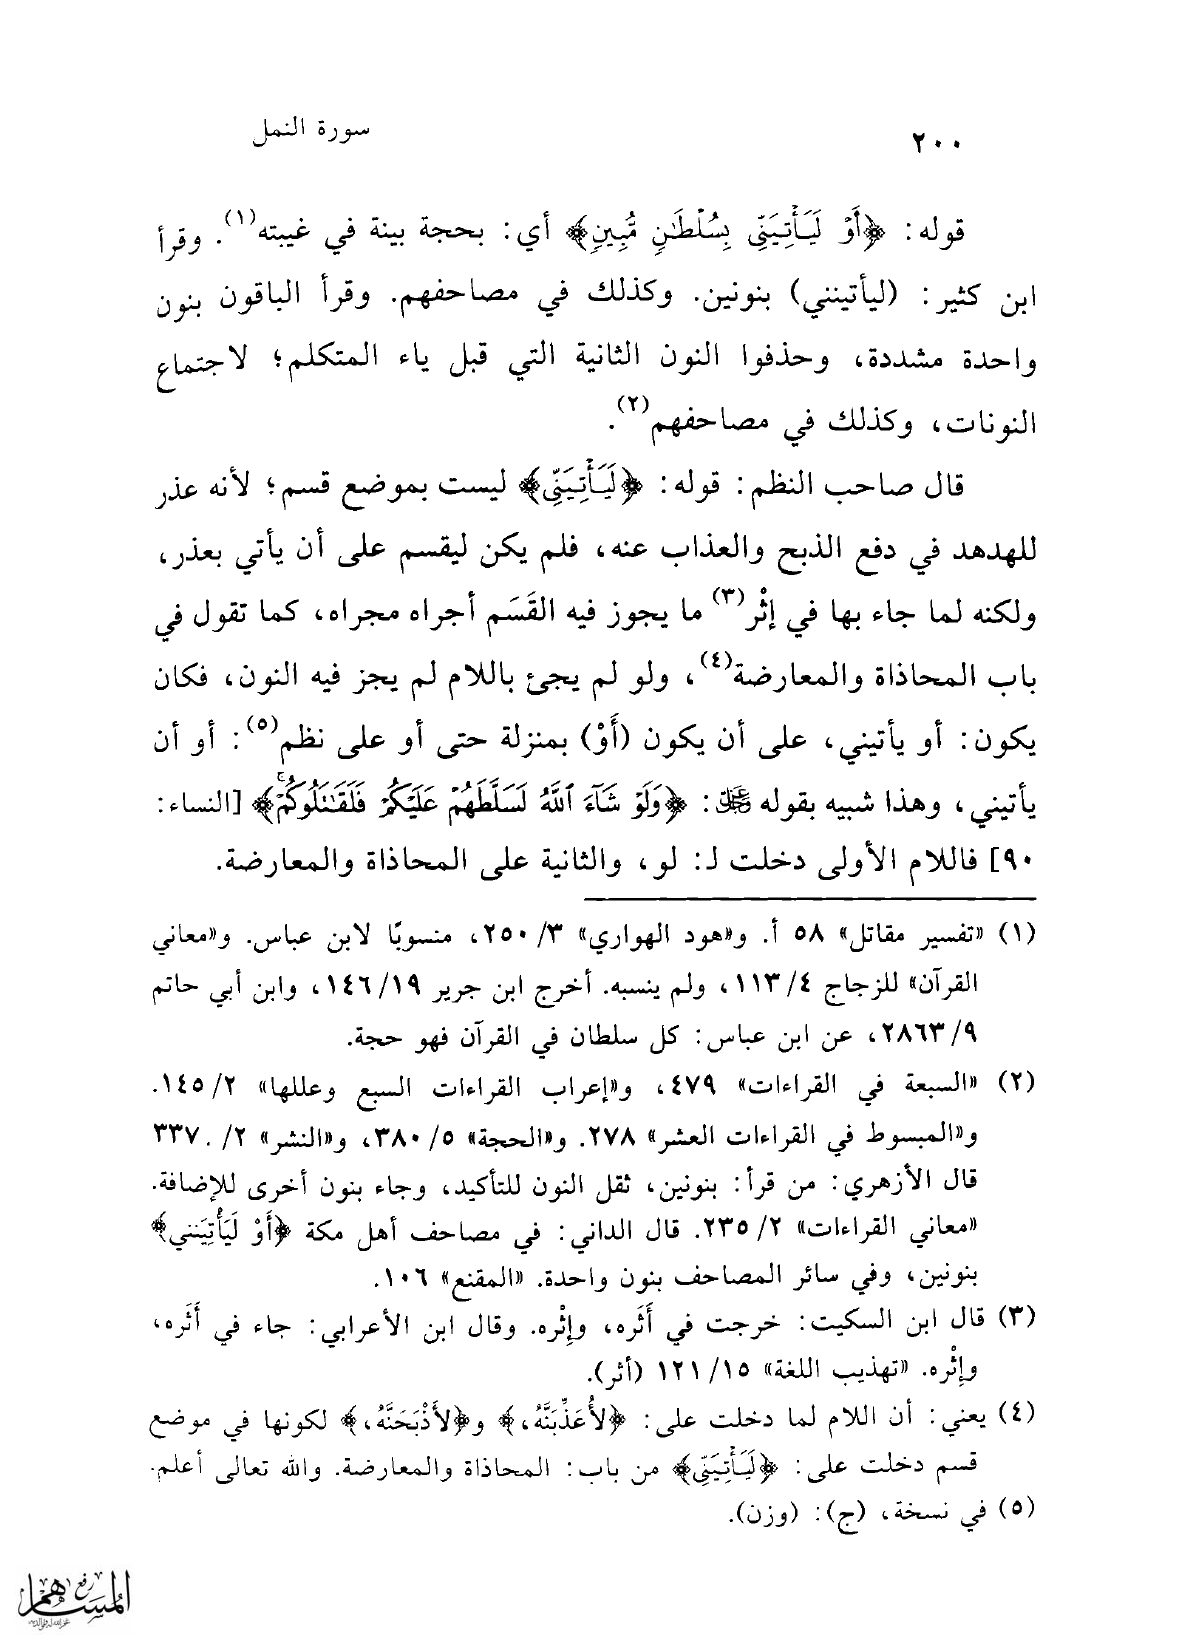 ٢٠٠ سورة النمل
قوله: ﴿أَوْ لَيَأْتِيَنِّي بِسُلْطَانٍ مُّبِينٍ﴾ أي: بحجة بينة في غيبته(١). وقرأ
ابن كثير: (ليأتينني) بنونين. وكذلك في مصاحفهم. وقرأ الباقون بنون
واحدة مشددة، وحذفوا النون الثانية التي قبل ياء المتكلم؛ لاجتماع
النونات، وكذلك في مصاحفهم(٢).
قال صاحب النظم: قوله: ﴿لَيَأْتِيَنِّي﴾ ليست بموضع قسم؛ لأنه عذر
للهدهد في دفع الذبح والعذاب عنه، فلم يكن ليقسم على أن يأتي بعذر،
ولكنه لما جاء بها في إثْر(٣) ما يجوز فيه القَسَم أجراه مجراه، كما تقول في
باب المحاذاة والمعارضة(٤)، ولو لم يجئ باللام لم يجز فيه النون، فكان
يكون: أو يأتيني، على أن يكون (أَوْ) بمنزلة حتى أو على نظم(٥): أو أن
يأتيني، وهذا شبيه بقوله ﷻ: ﴿وَلَوْ شَآءَ ٱللَّهُ لَسَلَّطَهُمْ عَلَيْكُمْ فَلَقَٰتَلُوكُمْۚ﴾ [النساء:
٩٠] فاللام الأولى دخلت لـ: لو، والثانية على المحاذاة والمعارضة.
(١) «تفسير مقاتل» ٥٨ أ. و«هود الهواري» ٣/ ٢٥٠، منسوبًا لابن عباس. و«معاني
القرآن» للزجاج ٤/ ١١٣، ولم ينسبه. أخرج ابن جرير ١٩/ ١٤٦، وابن أبي حاتم
٩/ ٢٨٦٣، عن ابن عباس: كل سلطان في القرآن فهو حجة.
(٢) «السبعة في القراءات» ٤٧٩، و«إعراب القراءات السبع وعللها» ٢/ ١٤٥.
و«المبسوط في القراءات العشر» ٢٧٨. و«الحجة» ٥/ ٣٨٠، و«النشر» ٢/ ٣٣٧.
قال الأزهري: من قرأ: بنونين، ثقل النون للتأكيد، وجاء بنون أخرى للإضافة.
«معاني القراءات» ٢/ ٢٣٥. قال الداني: في مصاحف أهل مكة ﴿أَوْ لَيَأْتِيَنني﴾
بنونين، وفي سائر المصاحف بنون واحدة. «المقنع» ١٠٦.
(٣) قال ابن السكيت: خرجت في أَثَره، وإِثْره. وقال ابن الأعرابي: جاء في أَثَره،
وإِثْره. «تهذيب اللغة» ١٥/ ١٢١ (أثر).
(٤) يعني: أن اللام لما دخلت على: ﴿لأُعَذِّبَنَّهُ،﴾ و﴿لأَذْبَحَنَّهُ،﴾ لكونها في موضع
قسم دخلت على: ﴿لَيَأْتِيَنِّي﴾ من باب: المحاذاة والمعارضة. والله تعالى أعلم.
(٥) في نسخة، (ج): (وزن).
رفع
المساهم